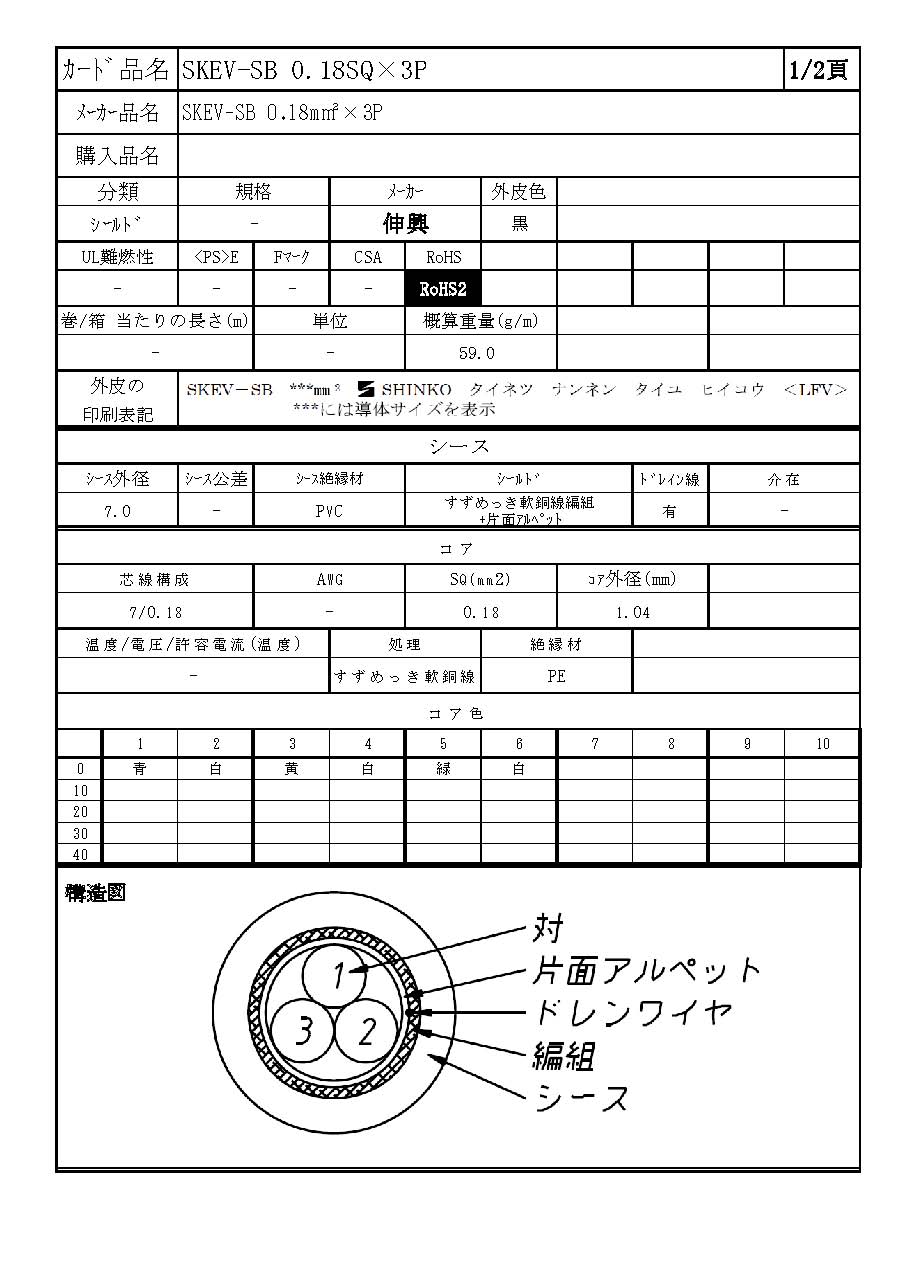 ｶｰﾄﾞ品名 SKEV-SB 0.18SQ×3P 1/2頁
ﾒｰｶｰ品名 SKEV-SB 0.18m㎡×3P
購入品名
分類 規格 ﾒｰｶｰ 外皮色
ｼｰﾙﾄﾞ - 伸興 黒
UL難燃性 <PS>E Fﾏｰｸ CSA RoHS
- - - - RoHS2
巻/箱 当たりの長さ(m) 単位 概算重量(g/m)
- - 59.0
外皮の
印刷表記
SKEV－SB ***mm² SHINKO タイネツ ナンネン タイユ ヒイコウ ＜LFV＞
***には導体サイズを表示
シース
ｼｰｽ外径 ｼｰｽ公差 ｼｰｽ絶縁材 ｼｰﾙﾄﾞ ﾄﾞﾚｲﾝ線 介在
7.0 - PVC すずめっき軟銅線編組 有 -
+片面ｱﾙﾍﾟｯﾄ
コア
芯線構成 AWG SQ(mm2) ｺｱ外径(mm)
7/0.18 - 0.18 1.04
温度/電圧/許容電流(温度) 処理 絶縁材
- すずめっき軟銅線 PE
コア色
1 2 3 4 5 6 7 8 9 10
0 青 白 黄 白 緑 白
10
20
30
40
構造図
対
片面アルペット
ドレンワイヤ
編組
シース
1
3 2